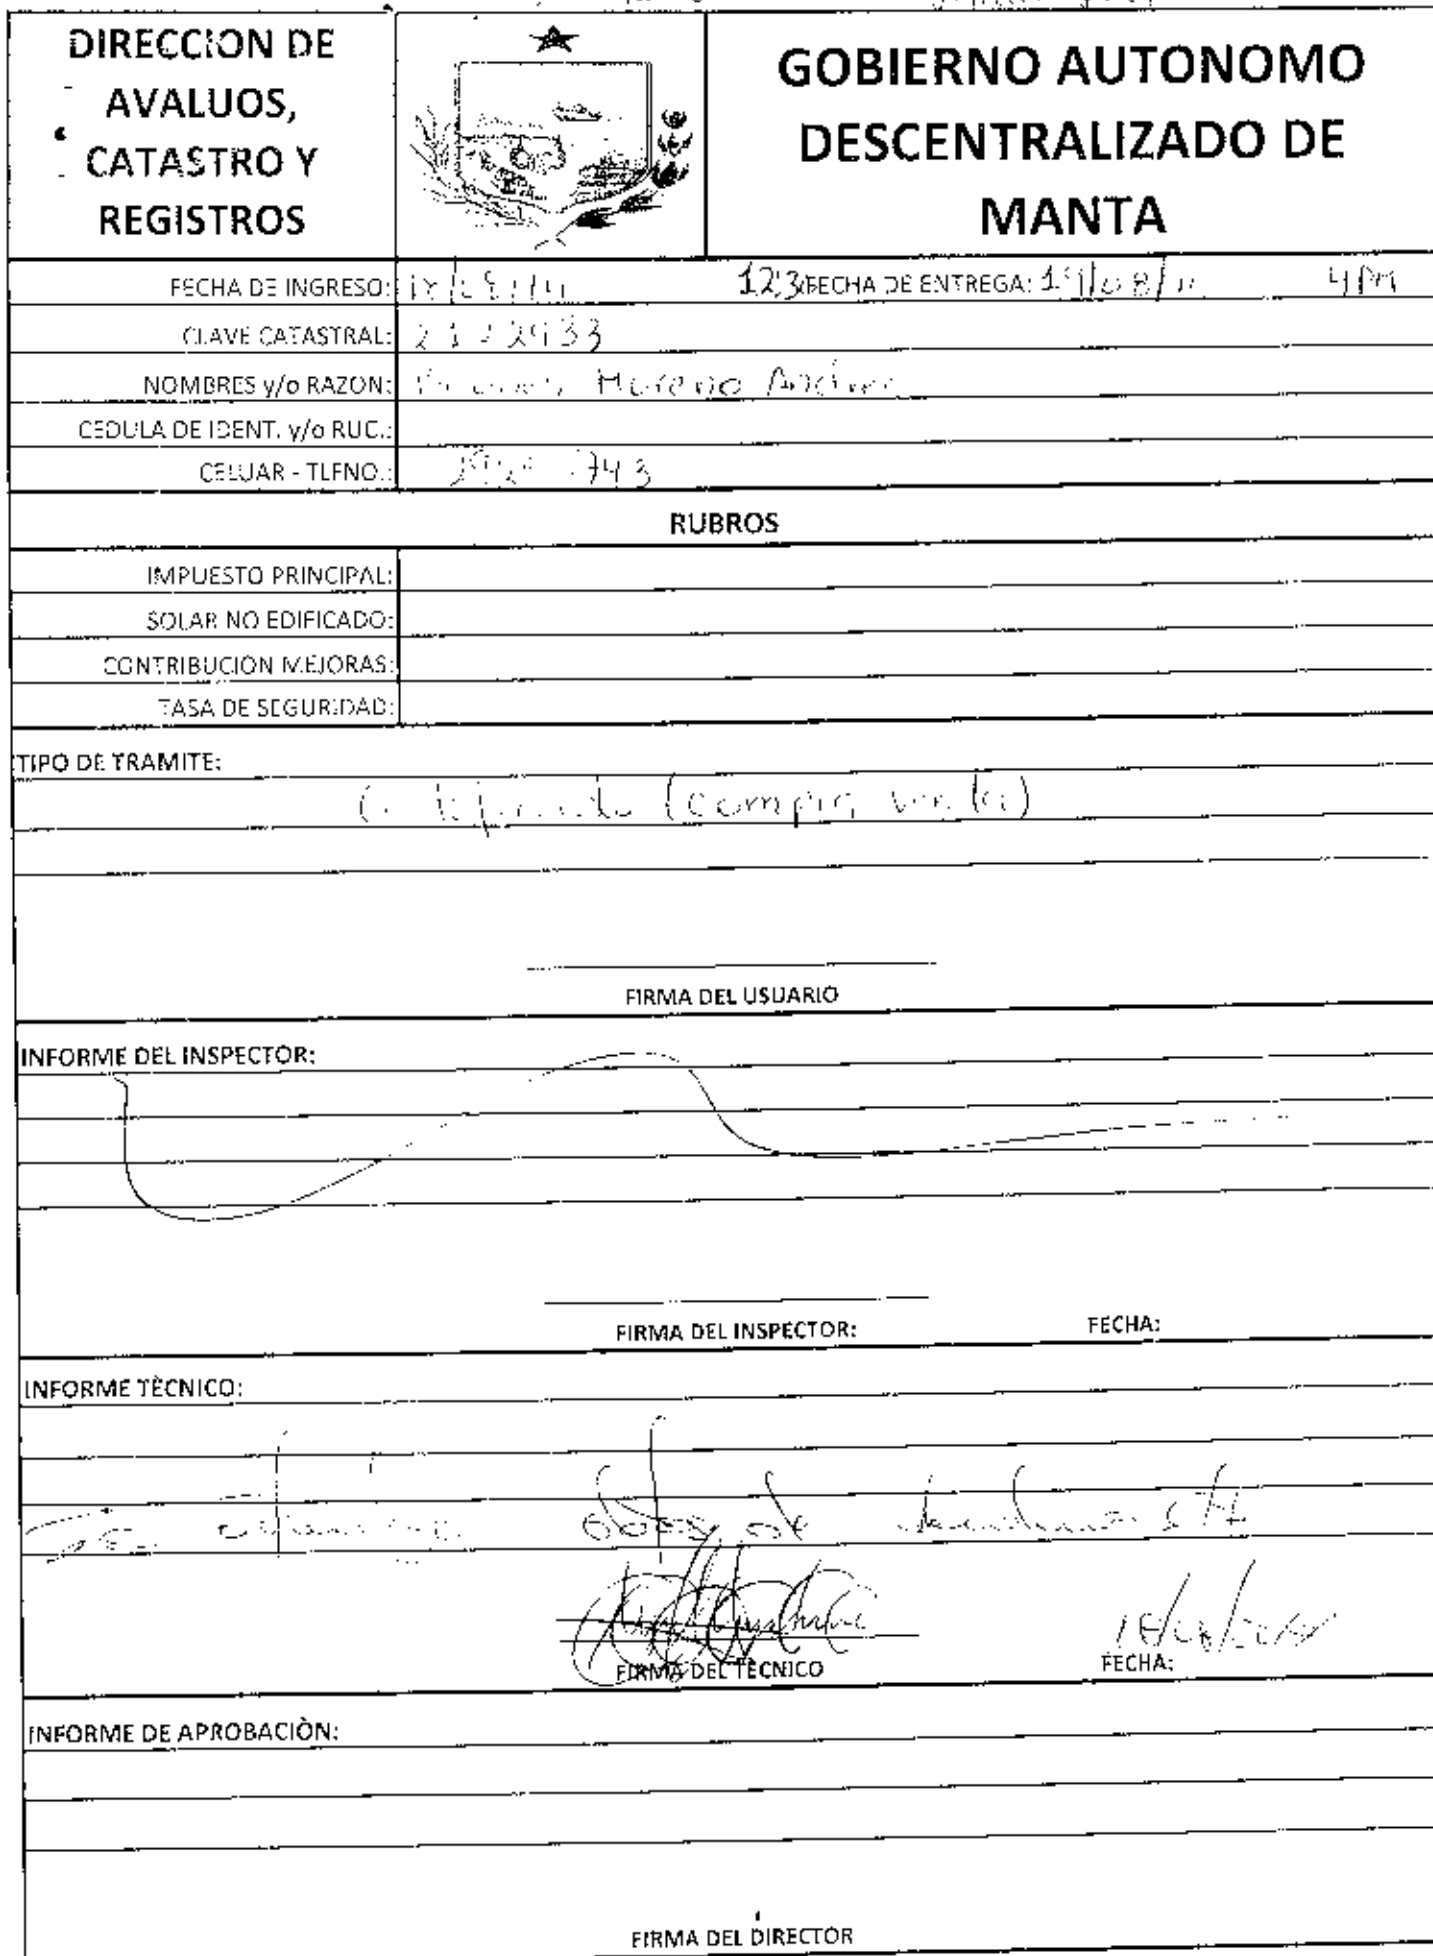 DIRECCION DE
AVALUOS,
CATASTRO Y
REGISTROS
GOBIERNO AUTONOMO
DESCENTRALIZADO DE
MANTA
FECHA DE INGRESO:
12,3 FECHA DE ENTREGA: 19/08/11 4PM
CLAVE CATASTRAL: 2122933
NOMBRES y/o RAZON: Moreno Andres
CEDULA DE IDENT. y/o RUC.:
CELUAR - TLFNO.: 743
RUBROS
IMPUESTO PRINCIPAL:
SOLAR NO EDIFICADO:
CONTRIBUCION MEJORAS:
TASA DE SEGURIDAD:
TIPO DE TRAMITE:
(compra venta)
FIRMA DEL USUARIO
INFORME DEL INSPECTOR:
FIRMA DEL INSPECTOR: FECHA:
INFORME TÈCNICO:
FIRMA DEL TÈCNICO FECHA:
INFORME DE APROBACIÒN:
FIRMA DEL DIRECTOR